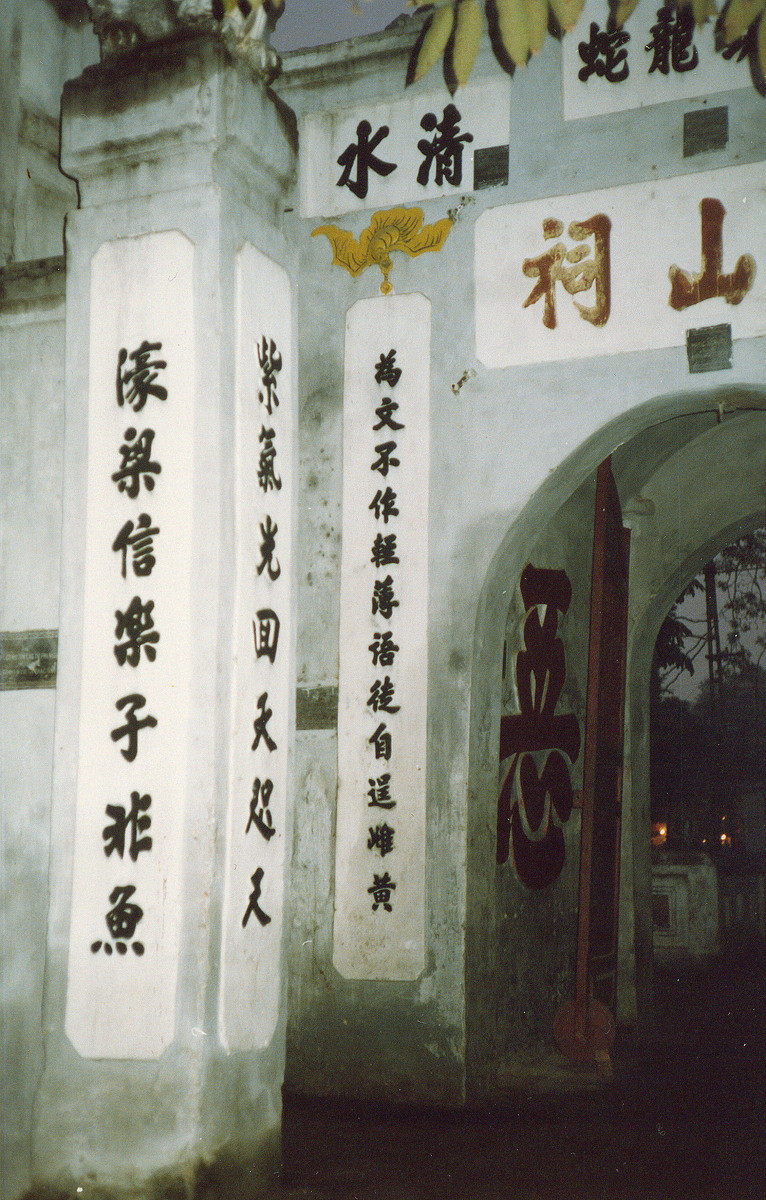 龍蛇
清水
山祠
為文不作輕薄語徒自逞雌黃
紫氣光回天咫尺
濠梁信楽子非魚